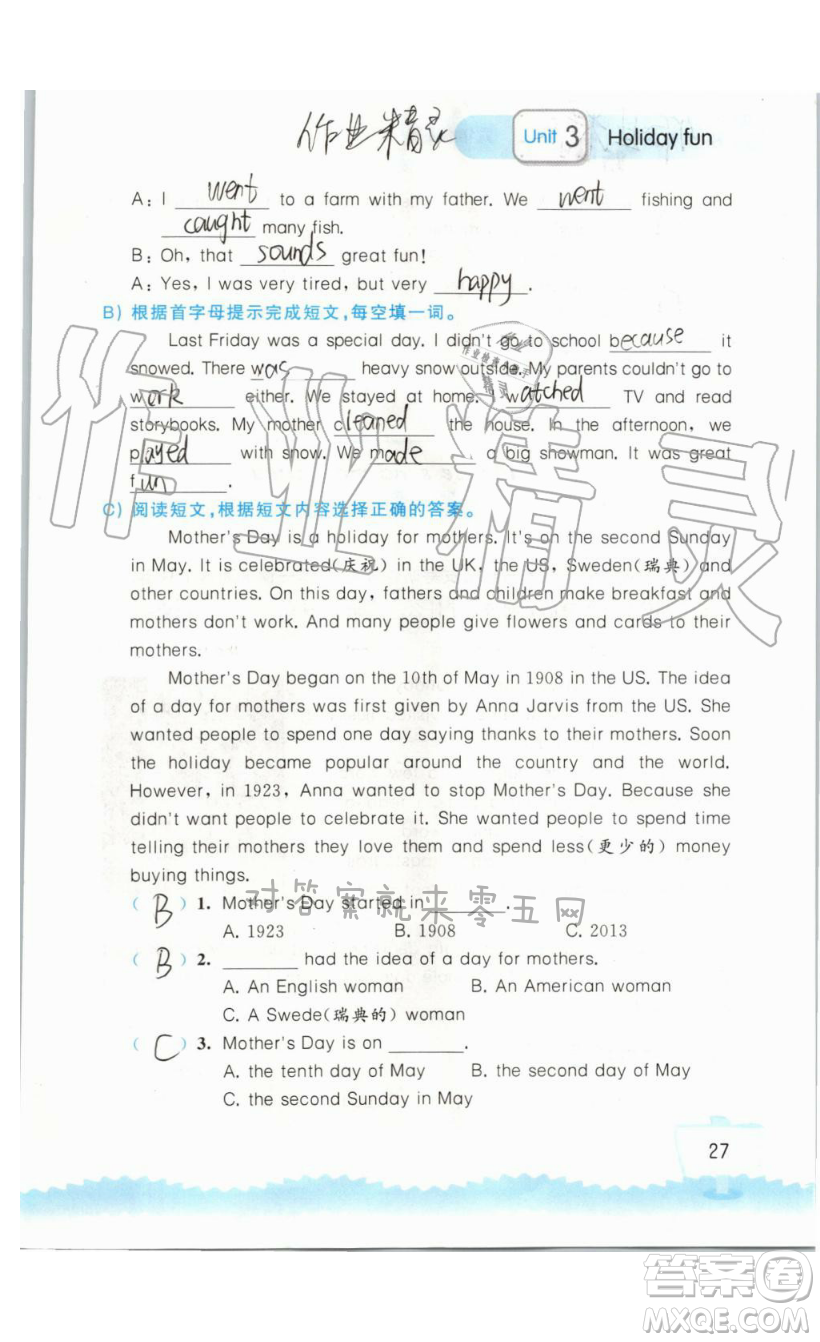 作业精灵
Unit 3 Holiday fun
A: I went to a farm with my father. We went fishing and
caught many fish.
B: Oh, that sounds great fun!
A: Yes, I was very tired, but very happy.
B) 根据首字母提示完成短文,每空填一词。
Last Friday was a special day. I didn't go to school because it
snowed. There was heavy snow outside. My parents couldn't go to
work either. We stayed at home. I watched TV and read
storybooks. My mother cleaned the house. In the afternoon, we
played with snow. We made a big showman. It was great
fun.
C) 阅读短文,根据短文内容选择正确的答案。
Mother's Day is a holiday for mothers. It's on the second Sunday
in May. It is celebrated(庆祝) in the UK, the US, Sweden(瑞典) and
other countries. On this day, fathers and children make breakfast and
mothers don't work. And many people give flowers and cards to their
mothers.
Mother's Day began on the 10th of May in 1908 in the US. The idea
of a day for mothers was first given by Anna Jarvis from the US. She
wanted people to spend one day saying thanks to their mothers. Soon
the holiday became popular around the country and the world.
However, in 1923, Anna wanted to stop Mother's Day. Because she
didn't want people to celebrate it. She wanted people to spend time
telling their mothers they love them and spend less(更少的) money
buying things.
对答案就来零五网
( B ) 1. Mother's Day started in ______.
A. 1923 B. 1908 C. 2013
( B ) 2. ______ had the idea of a day for mothers.
A. An English woman B. An American woman
C. A Swede(瑞典的) woman
( C ) 3. Mother's Day is on ______.
A. the tenth day of May B. the second day of May
C. the second Sunday in May
27
作业精灵
答案圈
MXQE.COM